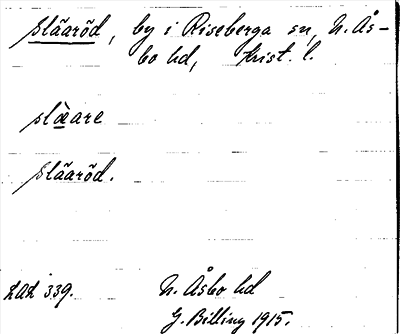 Slãaröd, by i Riseberga sn, N. Ås-
bo hd, Krist. l.
slæ̀are
Slãaröd.
LAL 339. N. Åsbo hd
G. Billing 1915.